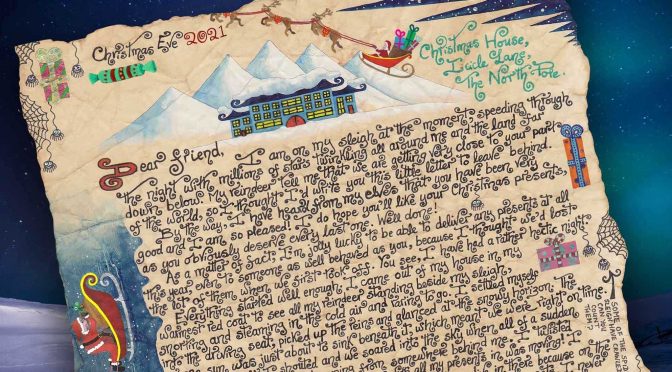 Christmas Eve 2021
Christmas House,
Icicle Lane,
The North Pole.
Dear Friend,
I am on my sleigh at the moment, speeding through
the night with millions of stars twinkling all around me and the land far
down below. My reindeer tell me that we are getting very close to your part
of the world, so I thought I'd write you this little letter to leave behind.
By the way, I have heard from my elves that you have been very
good and I am so pleased! I do hope you'll like your Christmas presents,
as you obviously deserve every last one. Well done!
As a matter of fact, I'm jolly lucky to be able to deliver any presents at all
this year, even to someone as well behaved as you, because I thought we'd lost
the lot of them when we first took off. You see, I have had a rather hectic night.
Everything started well enough. I came out of my house in my
warmest red coat to see all my reindeer standing beside my sleigh,
snorting and steaming in the cold air and raring to go. I settled myself
into the driving seat, picked up the reins and glanced at the snowy horizon. The
sun was just about to sink beneath it, which meant we were right on time.
and we soared into the sky, when all of a sudden
from somewhere behind me. I twisted
presents in was moving! I
in there because on the